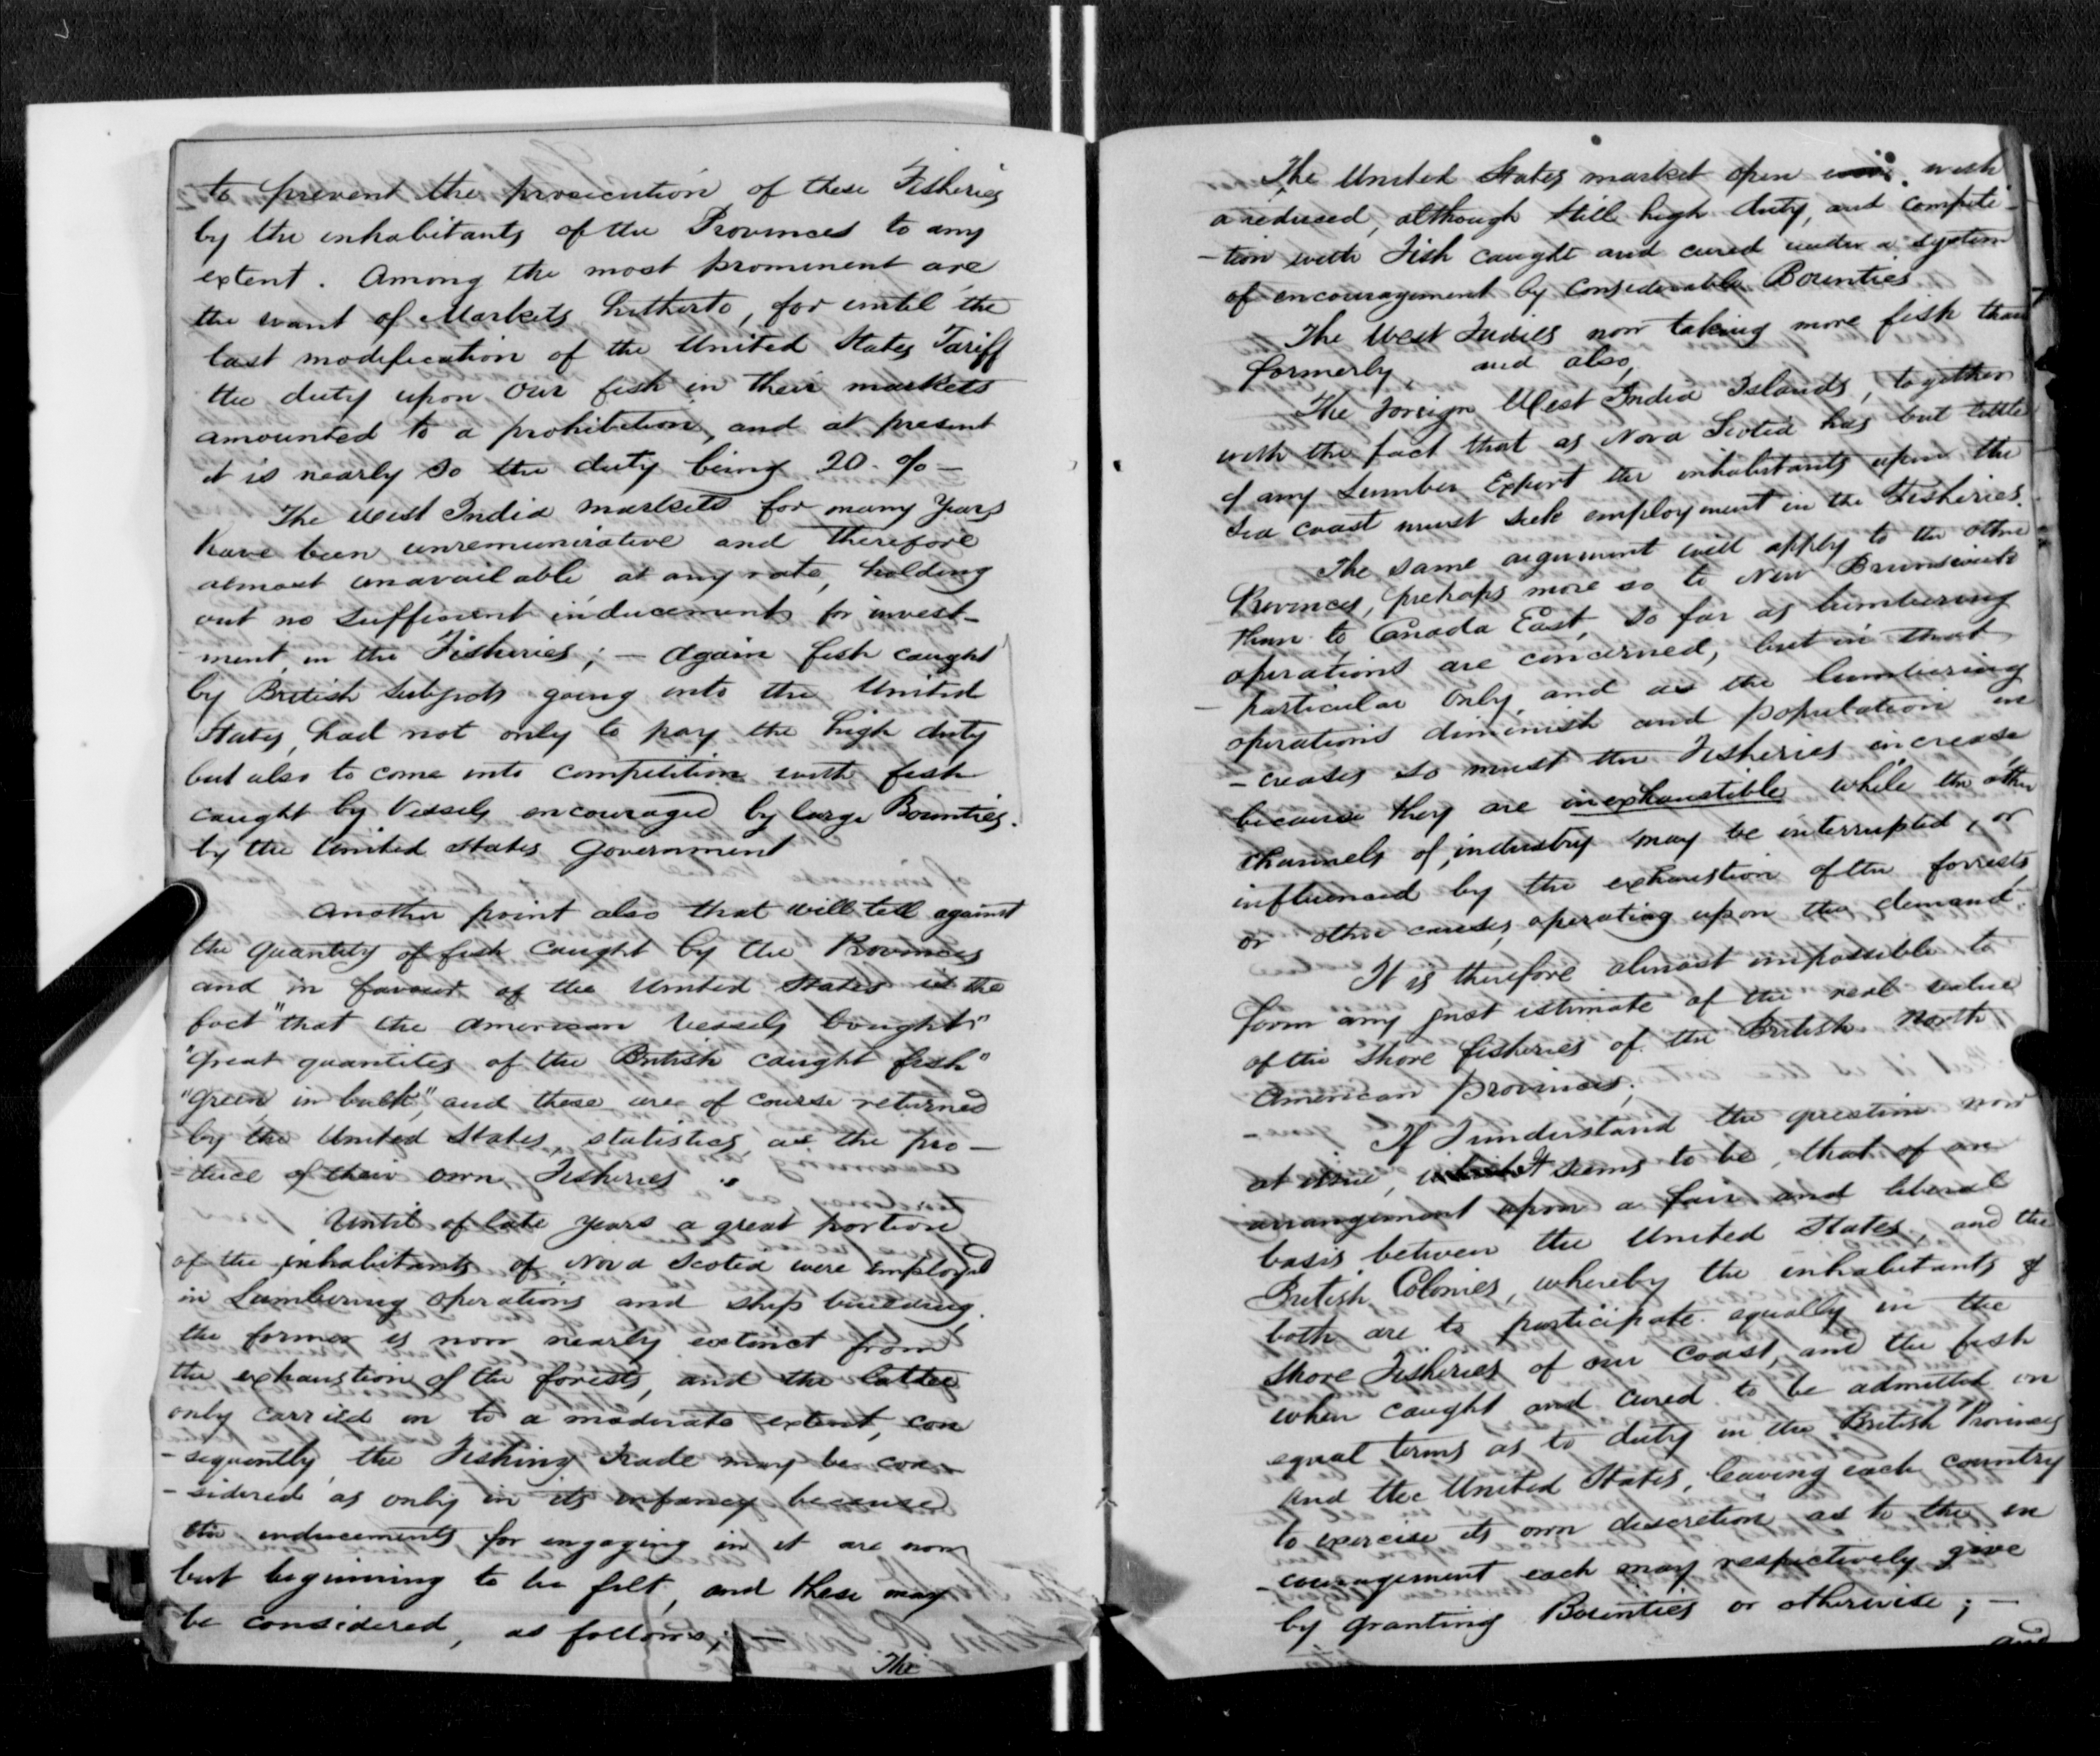 to prevent the prosecution of these Fisheries
by the inhabitants of the Provinces to any
extent. Among the most prominent are
the want of Markets hitherto, for until the
last modification of the United States Tariff
the duty upon our fish in their markets
amounted to a prohibition, and at present
it is nearly so the duty being 20. % —
The West India markets for many years
have been unremunirative and therefore
almost unavailable, at any rate, holding
out no sufficient inducements for invest-
ment in the Fisheries; — Again fish caught
by British Subjects going into the United
States, had not only to pay the high duty
but also to come into competition with fish
caught by Vessels encouraged by large Bounties.
by the United States Government
Another point also that will tell against
the quantity of fish caught by the Provinces
and in favour of the United States is the
fact "that the American Vessels bought"
"great quantites of the British caught fish"
"green in bulk," and these are of course returned
by the United States, statistics, as the pro-
-duce of their own Fisheries.
Until of late years a great portion
of the inhabitants of Nova Scotia were employed
in Lumbering operations and ship building,
the former is now nearly extinct from
the exhaustion of the forests, and the latter
only carried on to a moderate extent, con
-sequently the Fishing Trade may be con-
-sidered as only in its infancy because
the inducements for engaging in it are now
but beginning to be felt, and these may
be considered, as follows; —
The
The United States market open with
a reduced, although still high duty, and competi-
-tion with Fish caught and cured under a system
of encouragement by Considerable Bounties
The West Indies now taking more fish than
formerly, and also,
The Foreign West India Islands, together
with the fact that as Nova Scotia has but little
if any Lumber Export the inhabitants upon the
Sea coast must seek employment in the Fisheries.
The same argument will apply to the other
Provinces, perhaps more so to New Brunswick
than to Canada East, so far as lumbering
operations are concerned, but in that
particular only, and as the lumbering
operations diminish and population in
-creases so must the Fisheries increase
because they are inexhaustible while the other
channels of industry may be interrupted, or
influenced by the exhaustion of the forrests
or other causes, operating upon the demand.
It is therefore almost impossible to
form any just estimate of the real value
of the Shore fisheries of the British North
American Provinces;
If I understand the question now
at issue, it seems to be, that of an
arrangement upon a fair and liberal
basis between the United States, and the
British Colonies, whereby the inhabitants of
both are to participate equally in the
shore Fisheries of our Coast, and the fish
when caught and cured to be admitted on
equal terms as to duty in the British Provinces
and the United States, leaving each country
to exercise its own discretion as to the en
-couragement each may respectively give
by granting Bounties or otherwise; —
and